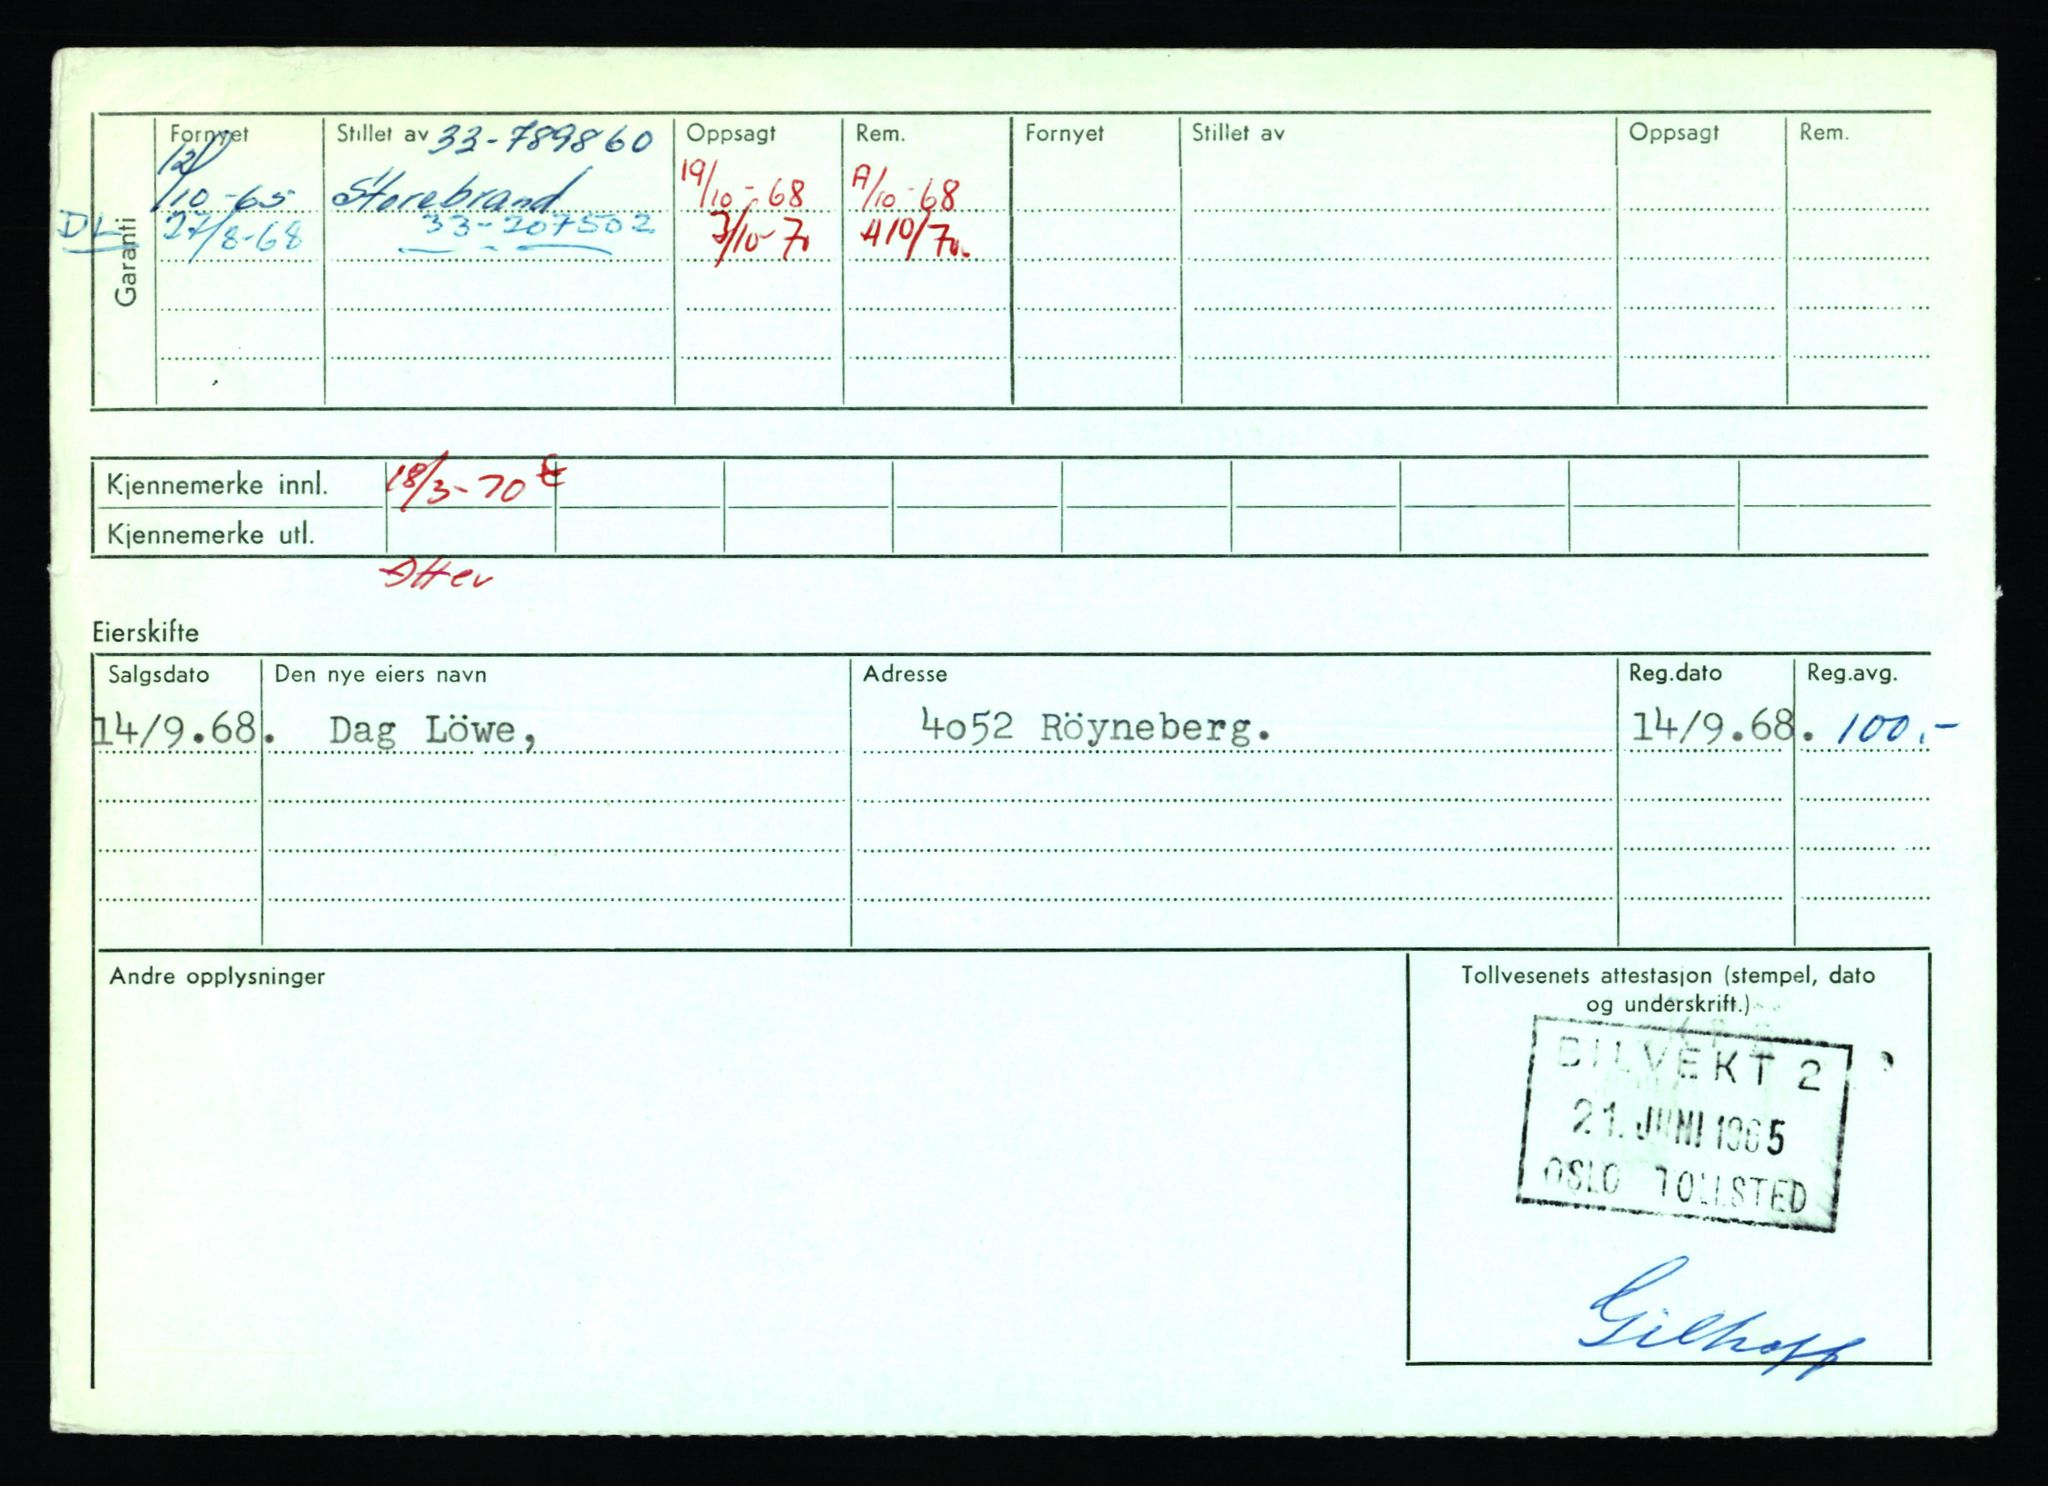 Fornyet Stillet av 33-789860 Oppsagt Rem. Fornyet Stillet av Oppsagt Rem.
12/10-65 Storebrand 19/10-68 A/10-68
DL 27/8-68 33-207502 7/10-70
Garanti
Kjennemerke innl. 18/3-70
Kjennemerke utl.
Eierskifte
Salgsdato Den nye eiers navn Adresse Reg.dato Reg.avg.
14/9.68. Dag Löwe, 4o52 Röyneberg. 14/9.68. 100.-
Andre opplysninger
Tollvesenets attestasjon (stempel, dato
og underskrift.)
BILVEKT 2
21. JUNI 1965
OSLO TOLLSTED